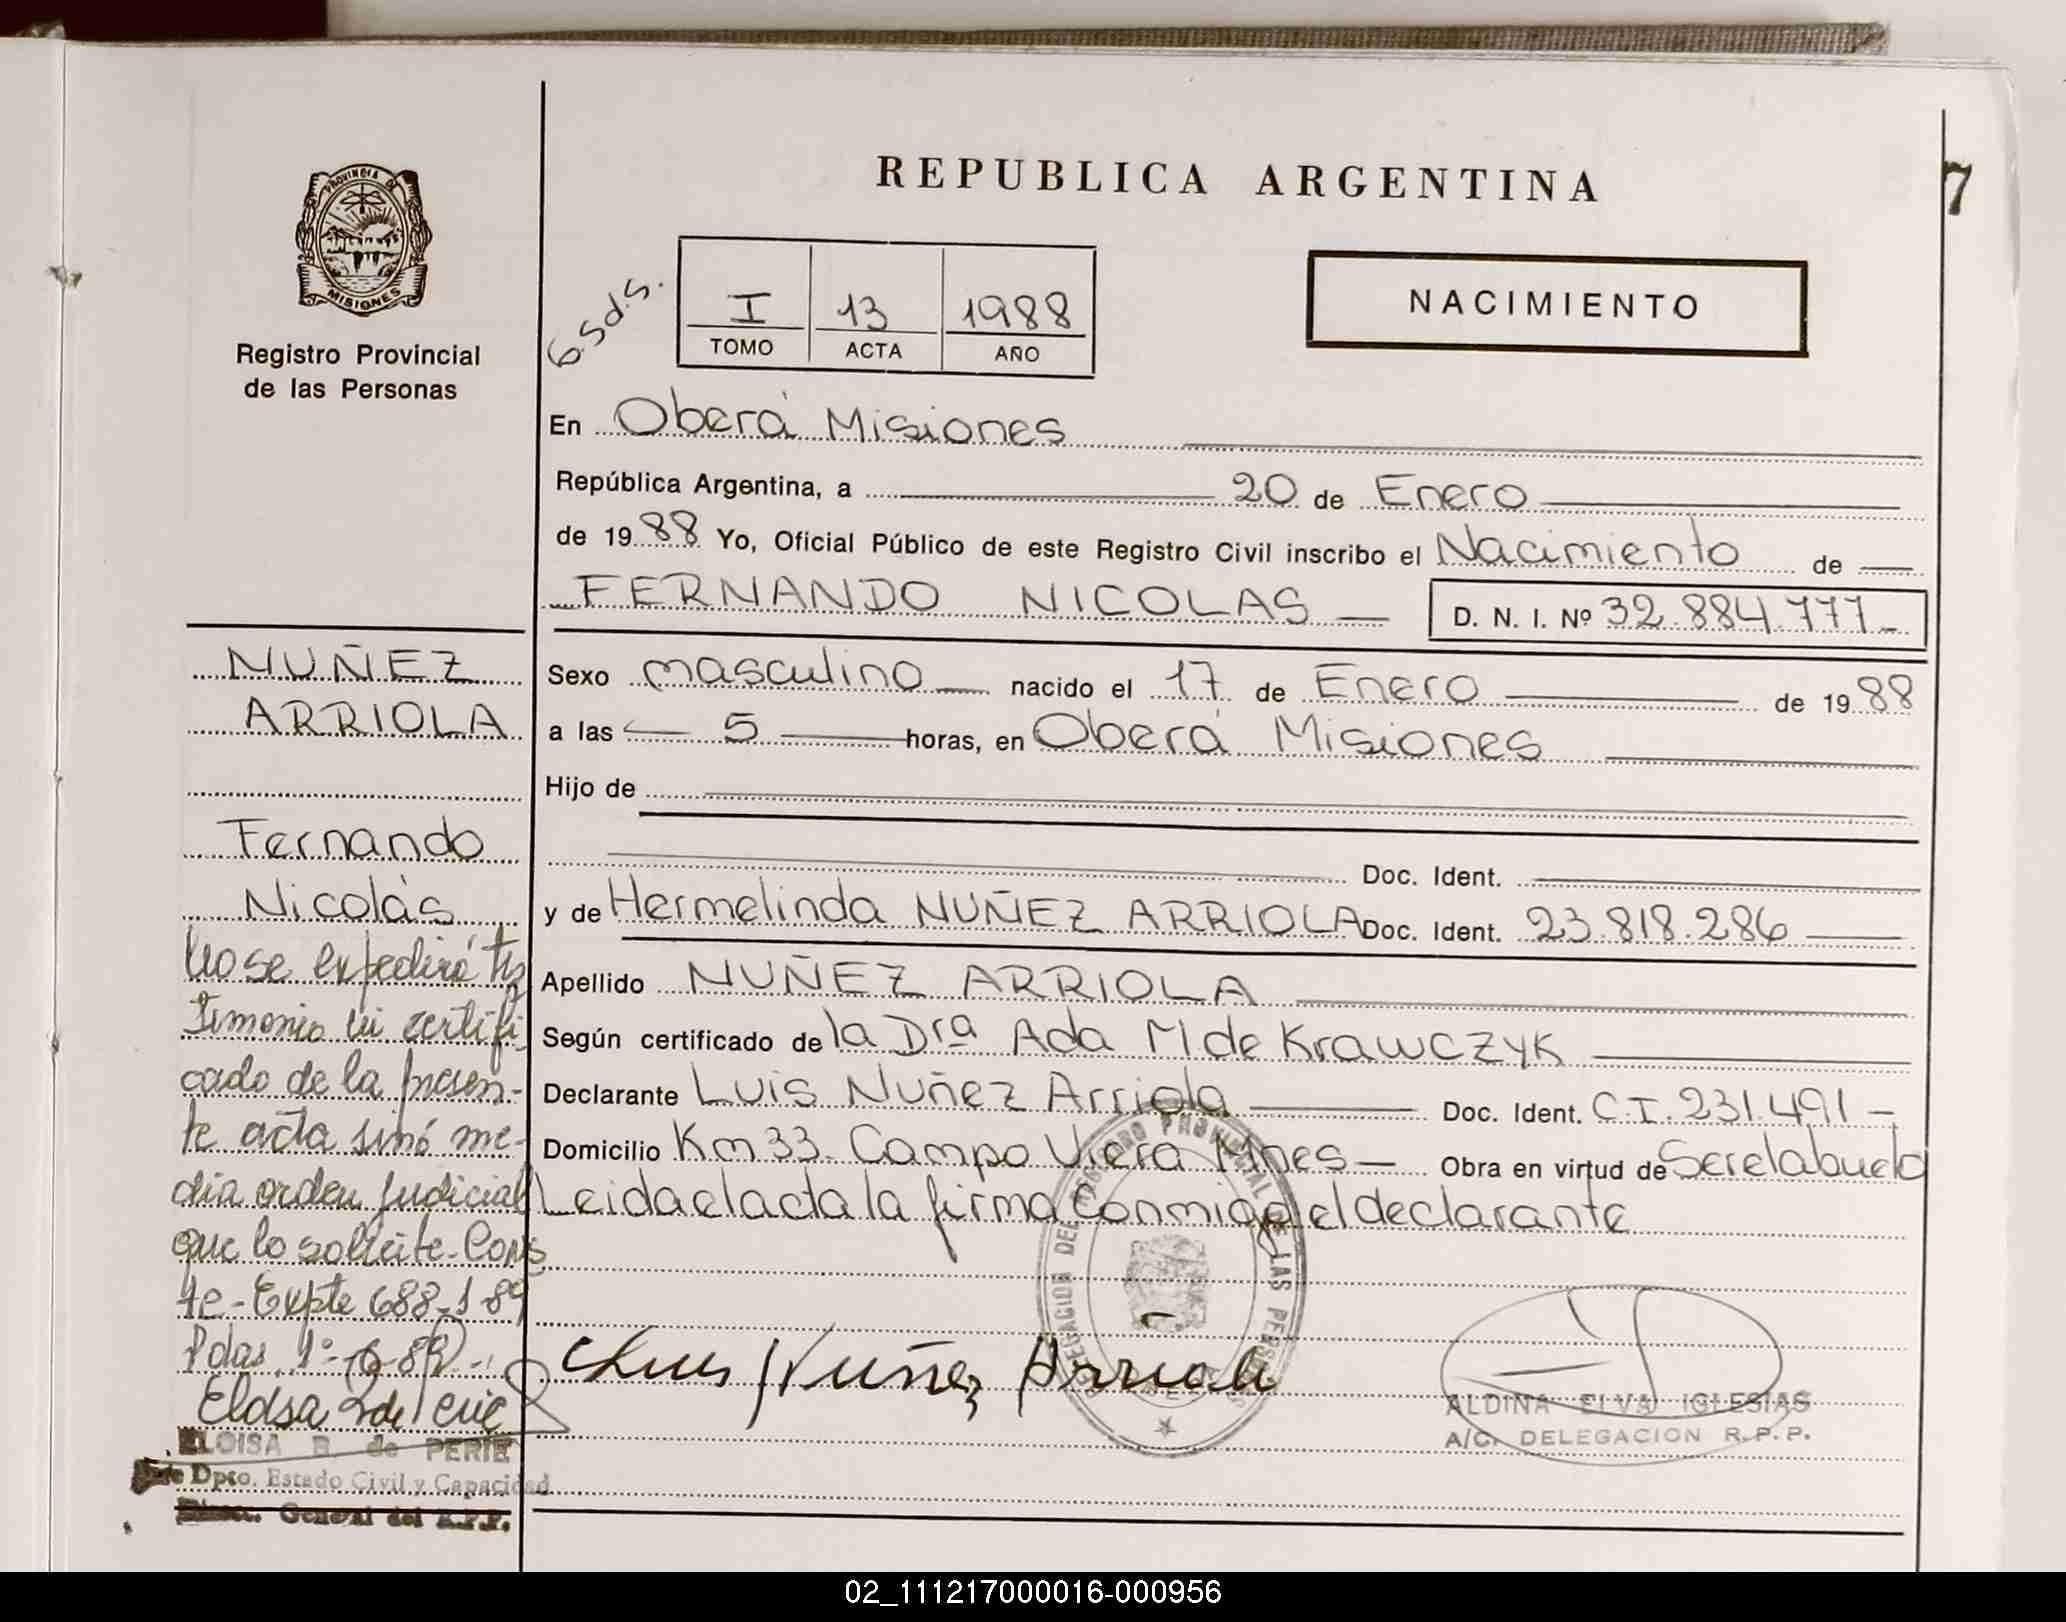 REPUBLICA ARGENTINA
7
PROVINCIA DE
MISIONES
Registro Provincial
de las Personas
6 s.d.s.
I 13 1988
TOMO ACTA AÑO
NACIMIENTO
En Oberá Misiones
República Argentina, a 20 de Enero
de 1988 Yo, Oficial Público de este Registro Civil inscribo el Nacimiento de
FERNANDO NICOLAS D. N. I. Nº 32.884.777
Sexo masculino nacido el 17 de Enero de 1988
a las 5 horas, en Oberá Misiones
Hijo de
Doc. Ident.
y de Hermelinda NUÑEZ ARRIOLA Doc. Ident. 23.818.286
Apellido NUÑEZ ARRIOLA
Según certificado de la Dra Ada M de Krawczyk
Declarante Luis Nuñez Arriola Doc. Ident. C.I. 231.491
Domicilio Km 33. Campo Viera Mnes Obra en virtud de Ser el abuelo
Leida el acta la firma conmigo el declarante
Luis Nuñez Arriola
DELEGACION DEL REGISTRO PROVINCIAL DE LAS PERSONAS
ALDINA ELVA IGLESIAS
A/C. DELEGACION R.P.P.
NUÑEZ
ARRIOLA
Fernando
Nicolás
No se expedirá tes
timonio ni certifi
cado de la presen-
te acta sinó me-
dia orden judicial
que lo solicite. Cons
te - Expte 688-1-89
Pdas. 1º-6-89
ELOISA R. de PERIE
Jefe Dpto. Estado Civil y Capacidad
Direc. General del R.P.P.
02_111217000016-000956